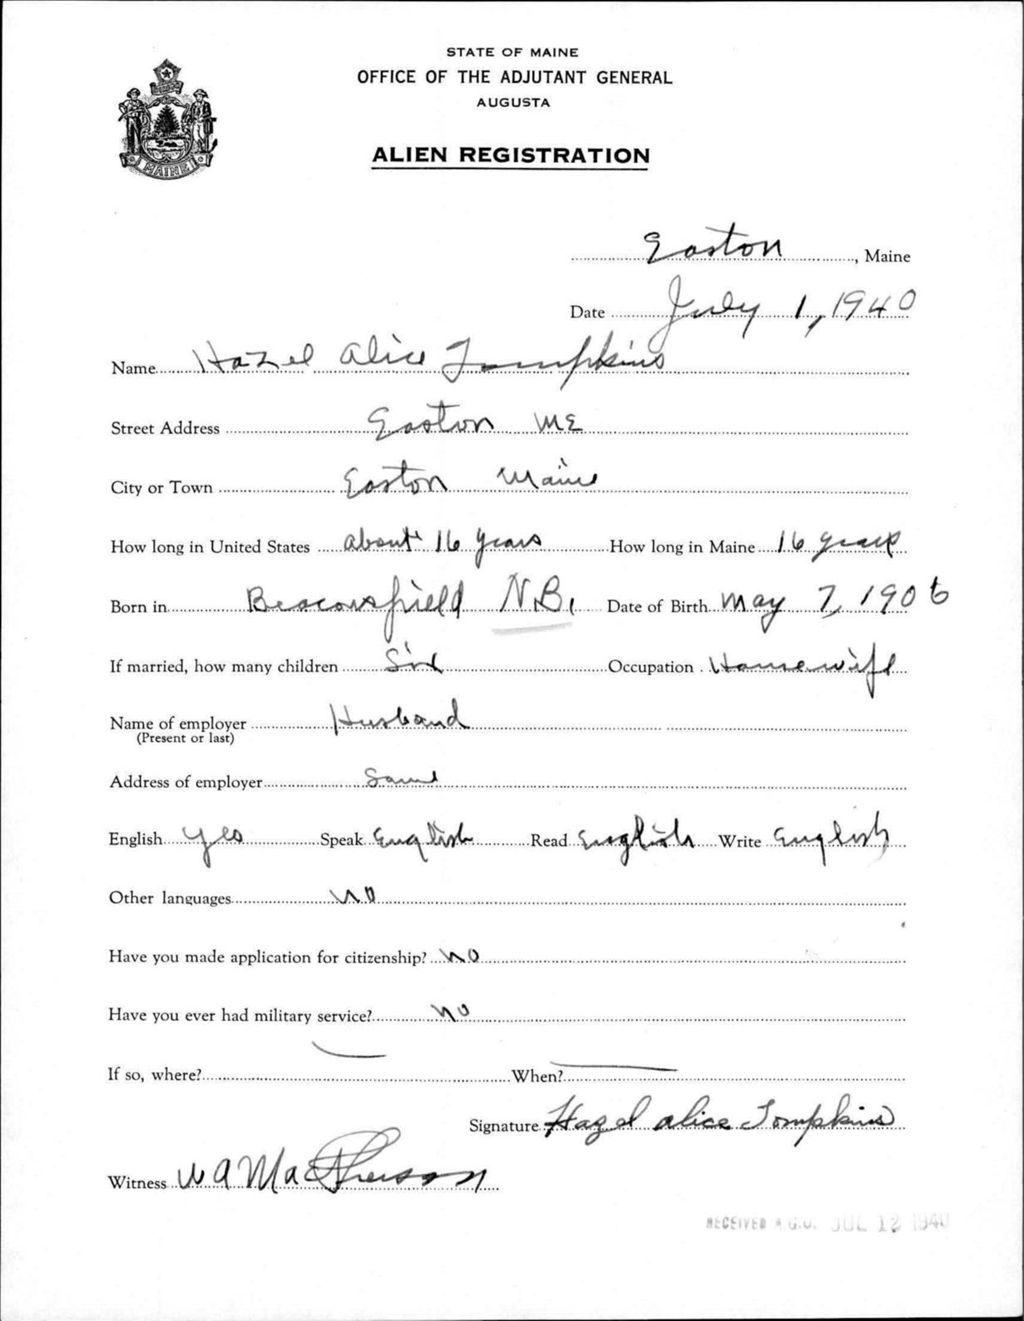 STATE OF MAINE
OFFICE OF THE ADJUTANT GENERAL
AUGUSTA
ALIEN REGISTRATION
MAINE
Easton, Maine
Date July 1, 1940
Name Hazel Alice Tompkins
Street Address Easton ME
City or Town Easton Maine
How long in United States about 16 years How long in Maine 16 years
Born in Beaconsfield N.B. Date of Birth May 7, 1906
If married, how many children Six Occupation Housewife
Name of employer Husband
(Present or last)
Address of employer Same
English Yes Speak English Read English Write English
Other languages NO
Have you made application for citizenship? NO
Have you ever had military service? NO
If so, where? — When? —
Signature Hazel Alice Tompkins
Witness W A MacPherson
RECEIVED A.G.O. JUL 12 1940